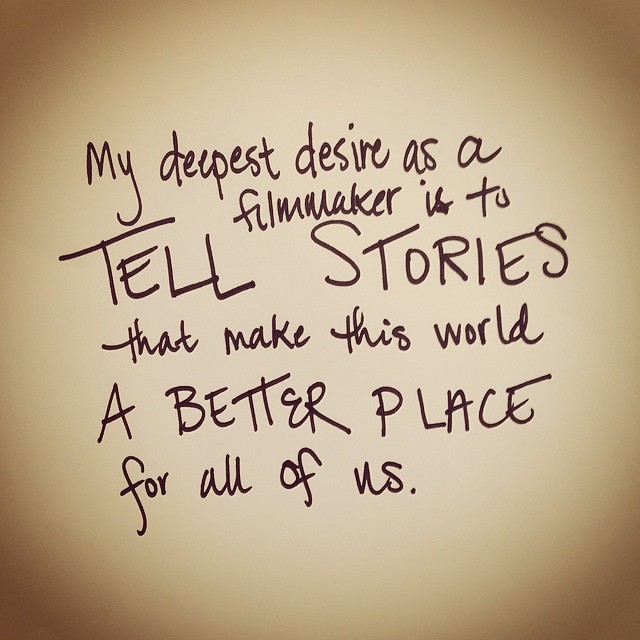 My deepest desire as a
filmmaker is to
TELL STORIES
that make this world
A BETTER PLACE
for all of us.